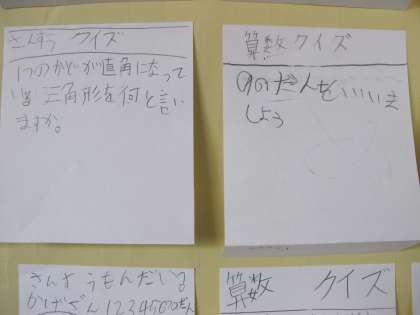 さんすう クイズ
1つのかどが直角になって
いる 三角形を何と言い
ますか。
算数クイズ
のだんをいいま
しょう
さんすうもんだい
かけざん123456のだん
算数 クイズ